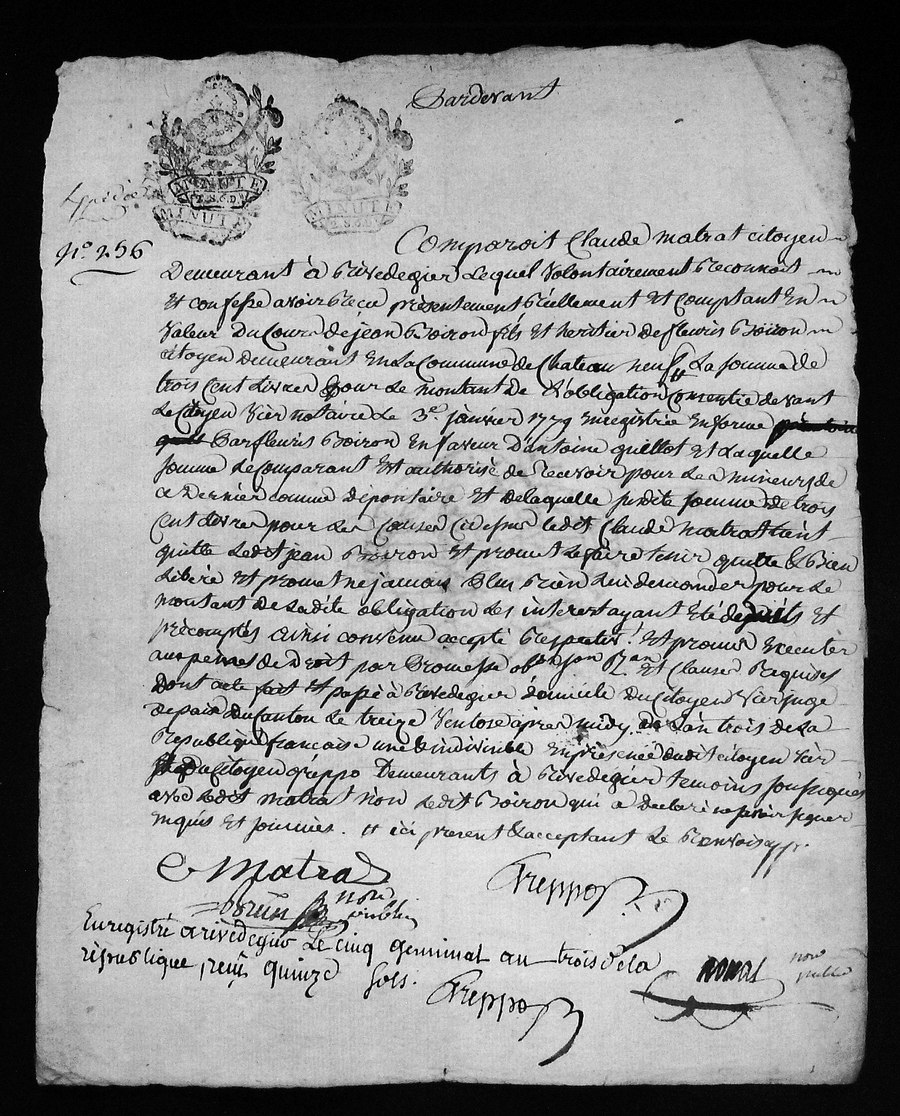 Pardevant
MINUTE
2. S. 6 D.
MINUTE
MINUTE
2. S. 6 D.
Expédiée
N.º 256
Comparoit Claude matrat citoyen
Demeurant à Rivedegier Lequel Volontairement Reconnoit
Et confesse avoir Recu présentement Réellement Et Comptant En
Valeur Du Cours de jean Boiron fils et heritier de fleuris Boiron
citoyen Demeurant En La Commune de Chateau neuf La somme de
trois Cent Livres pour Le montant de L'obligation Consentie devant
Le Citoyen Vier notaire Le 3e janvier 1779 Enregistrée En forme
Par fleuris Boiron En faveur D'antoine guillot Et Laquelle
somme Le Comparant Est authorisé de Recevoir pour Les mineurs de
ce Dernier comme dépositaire Et de laquelle susdite somme de trois
Cent Livres pour Les Causes Ci dessus ledit Claude matrat tient
quitte Ledit jean Boiron Et promet Le faire tenir quitte & Bien
Libéré Et promet ne jamais Plus Rien Lui demander pour Le
montant de Ladite obligation Les interets ayant Eté déduits Et
précomptés ainsi convenu accepté Et promis Executer
aux peines de Droit par Promesse Et Clauses Requises
Dont acte fait Et passé à Rivedegier domicile Du Citoyen Vier juge
de paix du Canton Le treize Ventose après midy L'an trois de La
Republique francaise une & indivisible En présence dudit citoyen Vier
Et Du Citoyen Greppo Demeurants à Rivedegier temoins soussignés
avec Ledit matrat Non Ledit Boiron qui a Declaré ne savoir signer
Enquis Et sommés. Et ici present & acceptant Le Renvois app.
C Matrat
Greppo
non
publié
Enregistré a rivedegier Le cinq germinal an trois de la
république, reçu Quinze sols.
Greppo
non
publié